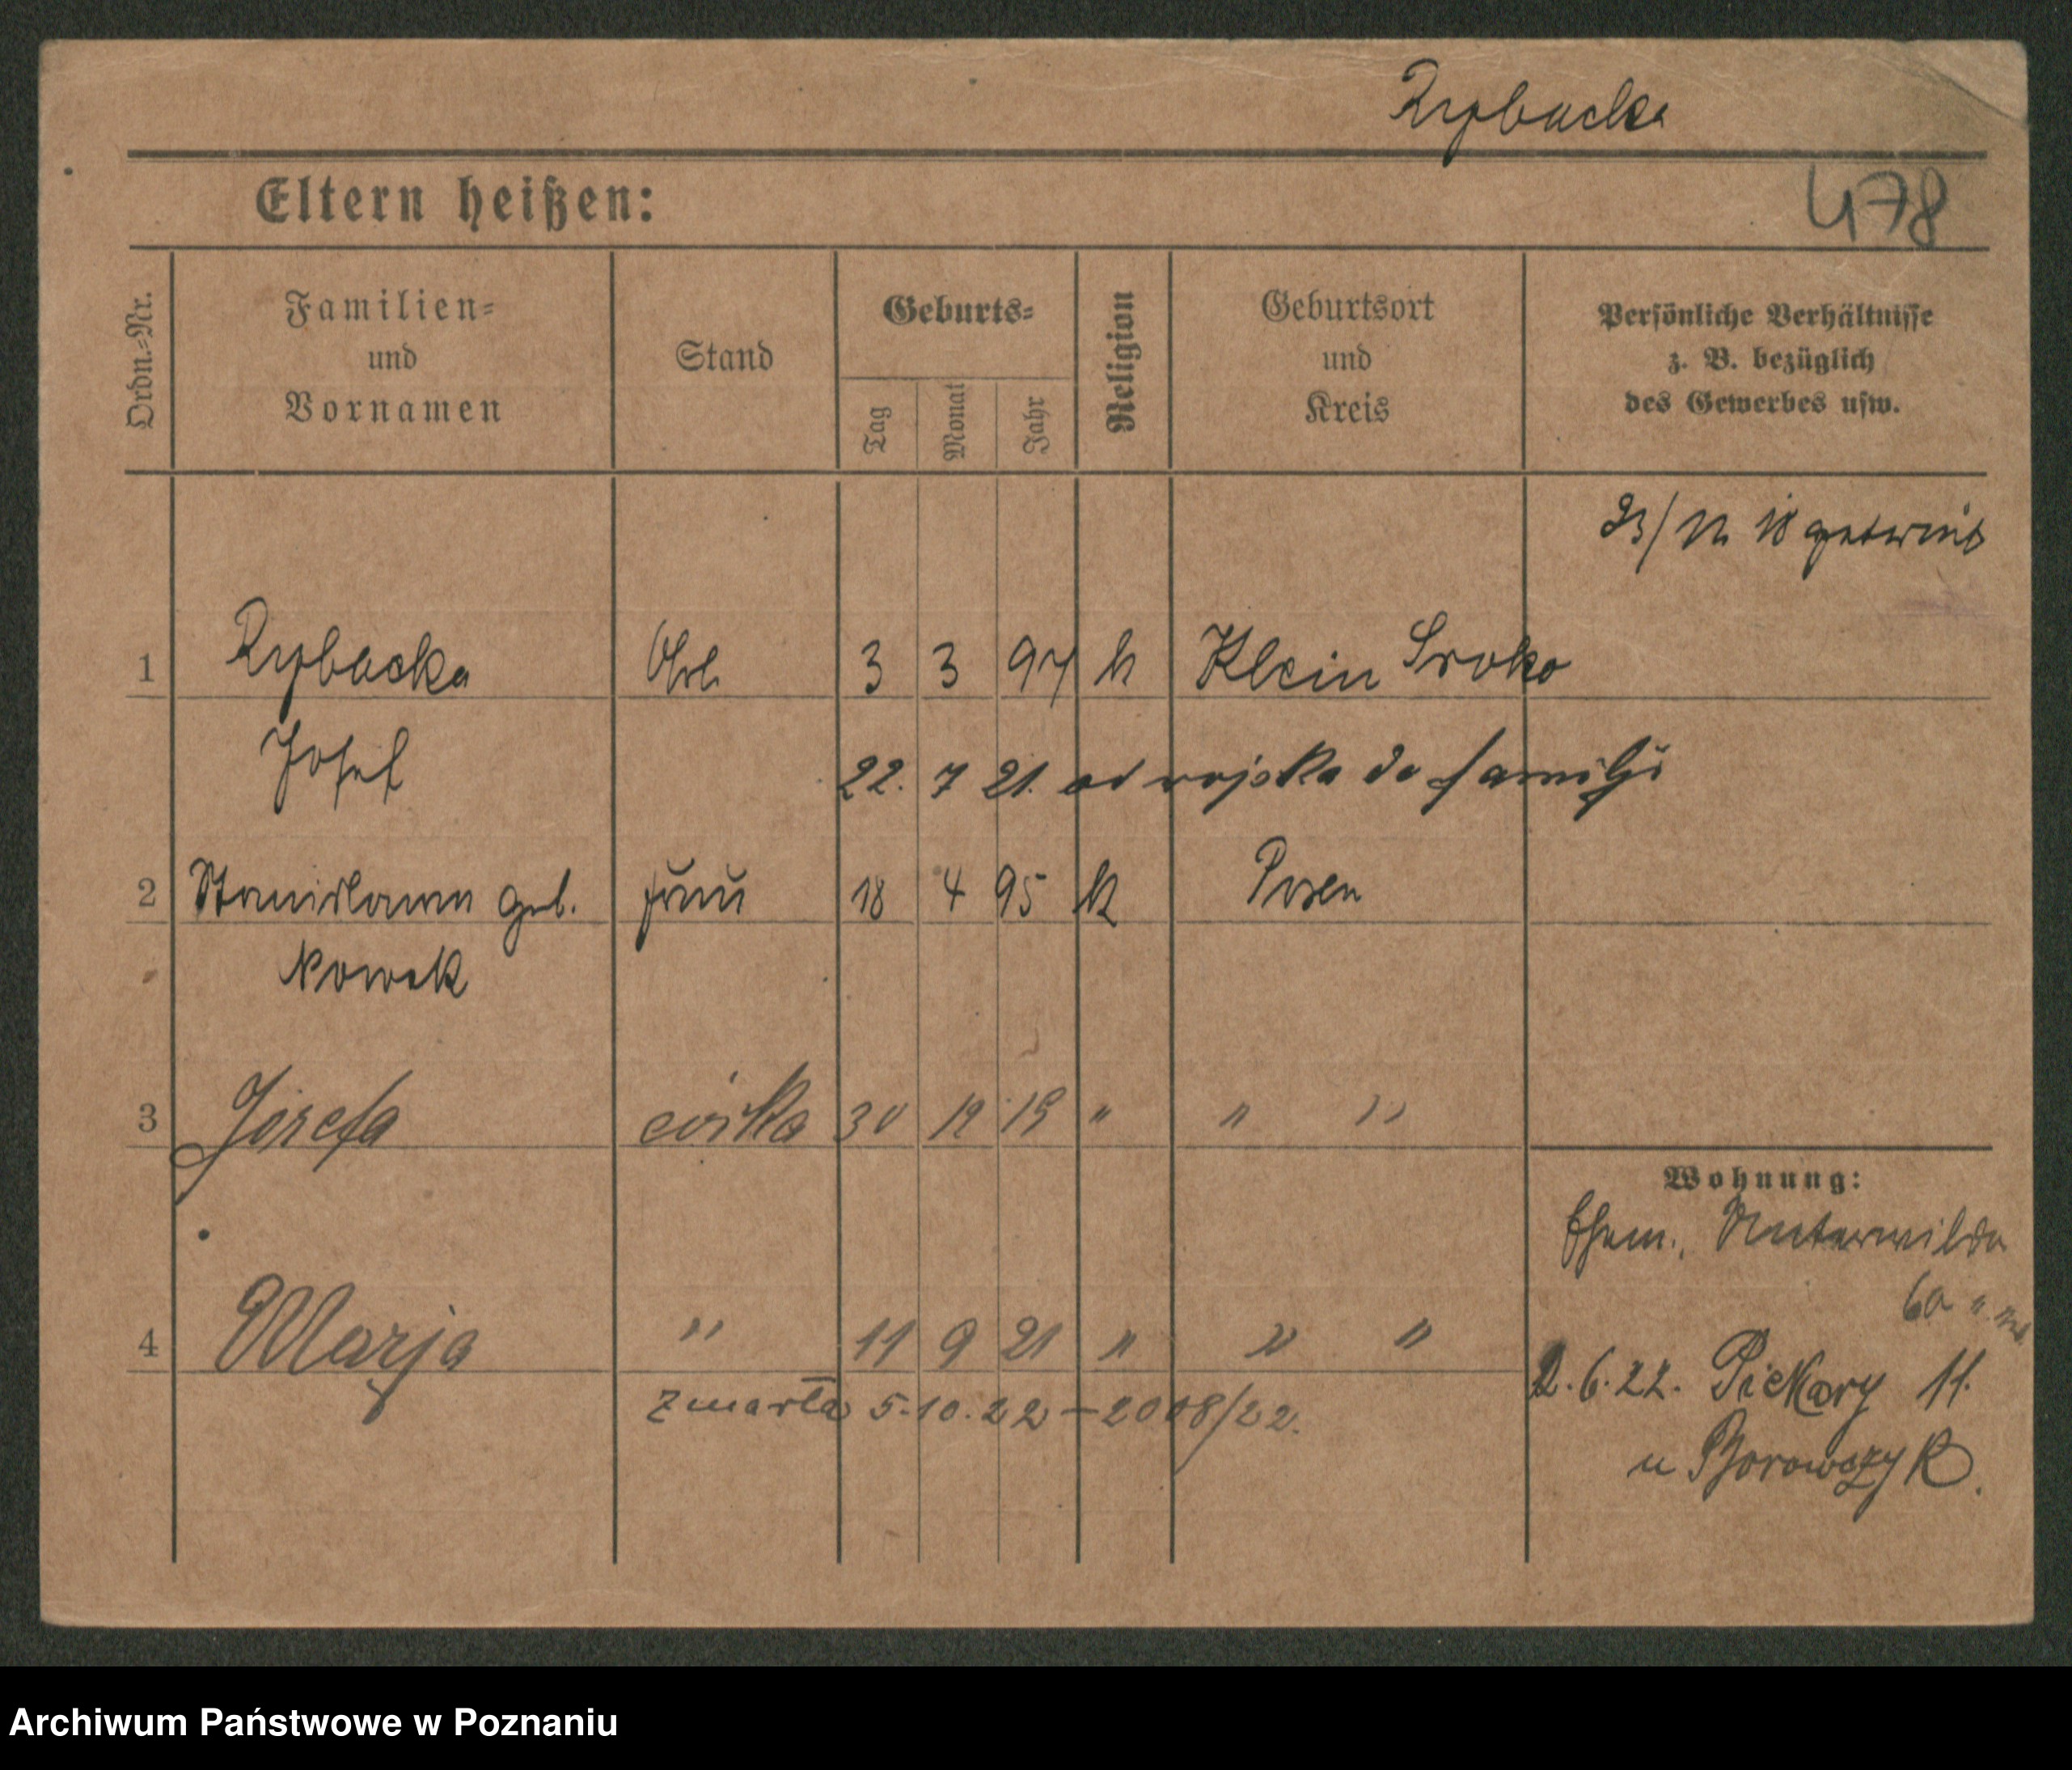 Rybacka
Eltern heißen:
478
Ordn.-Nr.
Familien-
und
Vornamen
Stand
Geburts-
Tag
Monat
Jahr
Religion
Geburtsort
und
Kreis
Persönliche Verhältnisse
z. B. bezüglich
des Gewerbes usw.
18 getraut
1 Rybacka 3 3 97 k Klein Sroko
Josef
22. 7 21. od wojska do familji
2 Stanislawa geb. Frau 18 4 95 k Posen
Nowak
3 Józefa córka 30 12 19 " " "
Wohnung:
Ehem. Unterwilda
6a
4 Marja " 11 9 21 " " "
zmarła 5.10.22 – 2018/22.
2.6.22. Piekary 11.
u Borowczyk.
Archiwum Państwowe w Poznaniu